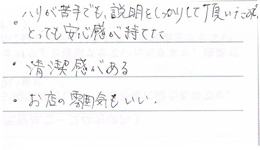 ・ハリが苦手でも、説明をしっかりして頂いたので、
とっても安心感が持てた
・清潔感がある
・お店の雰囲気もいい．